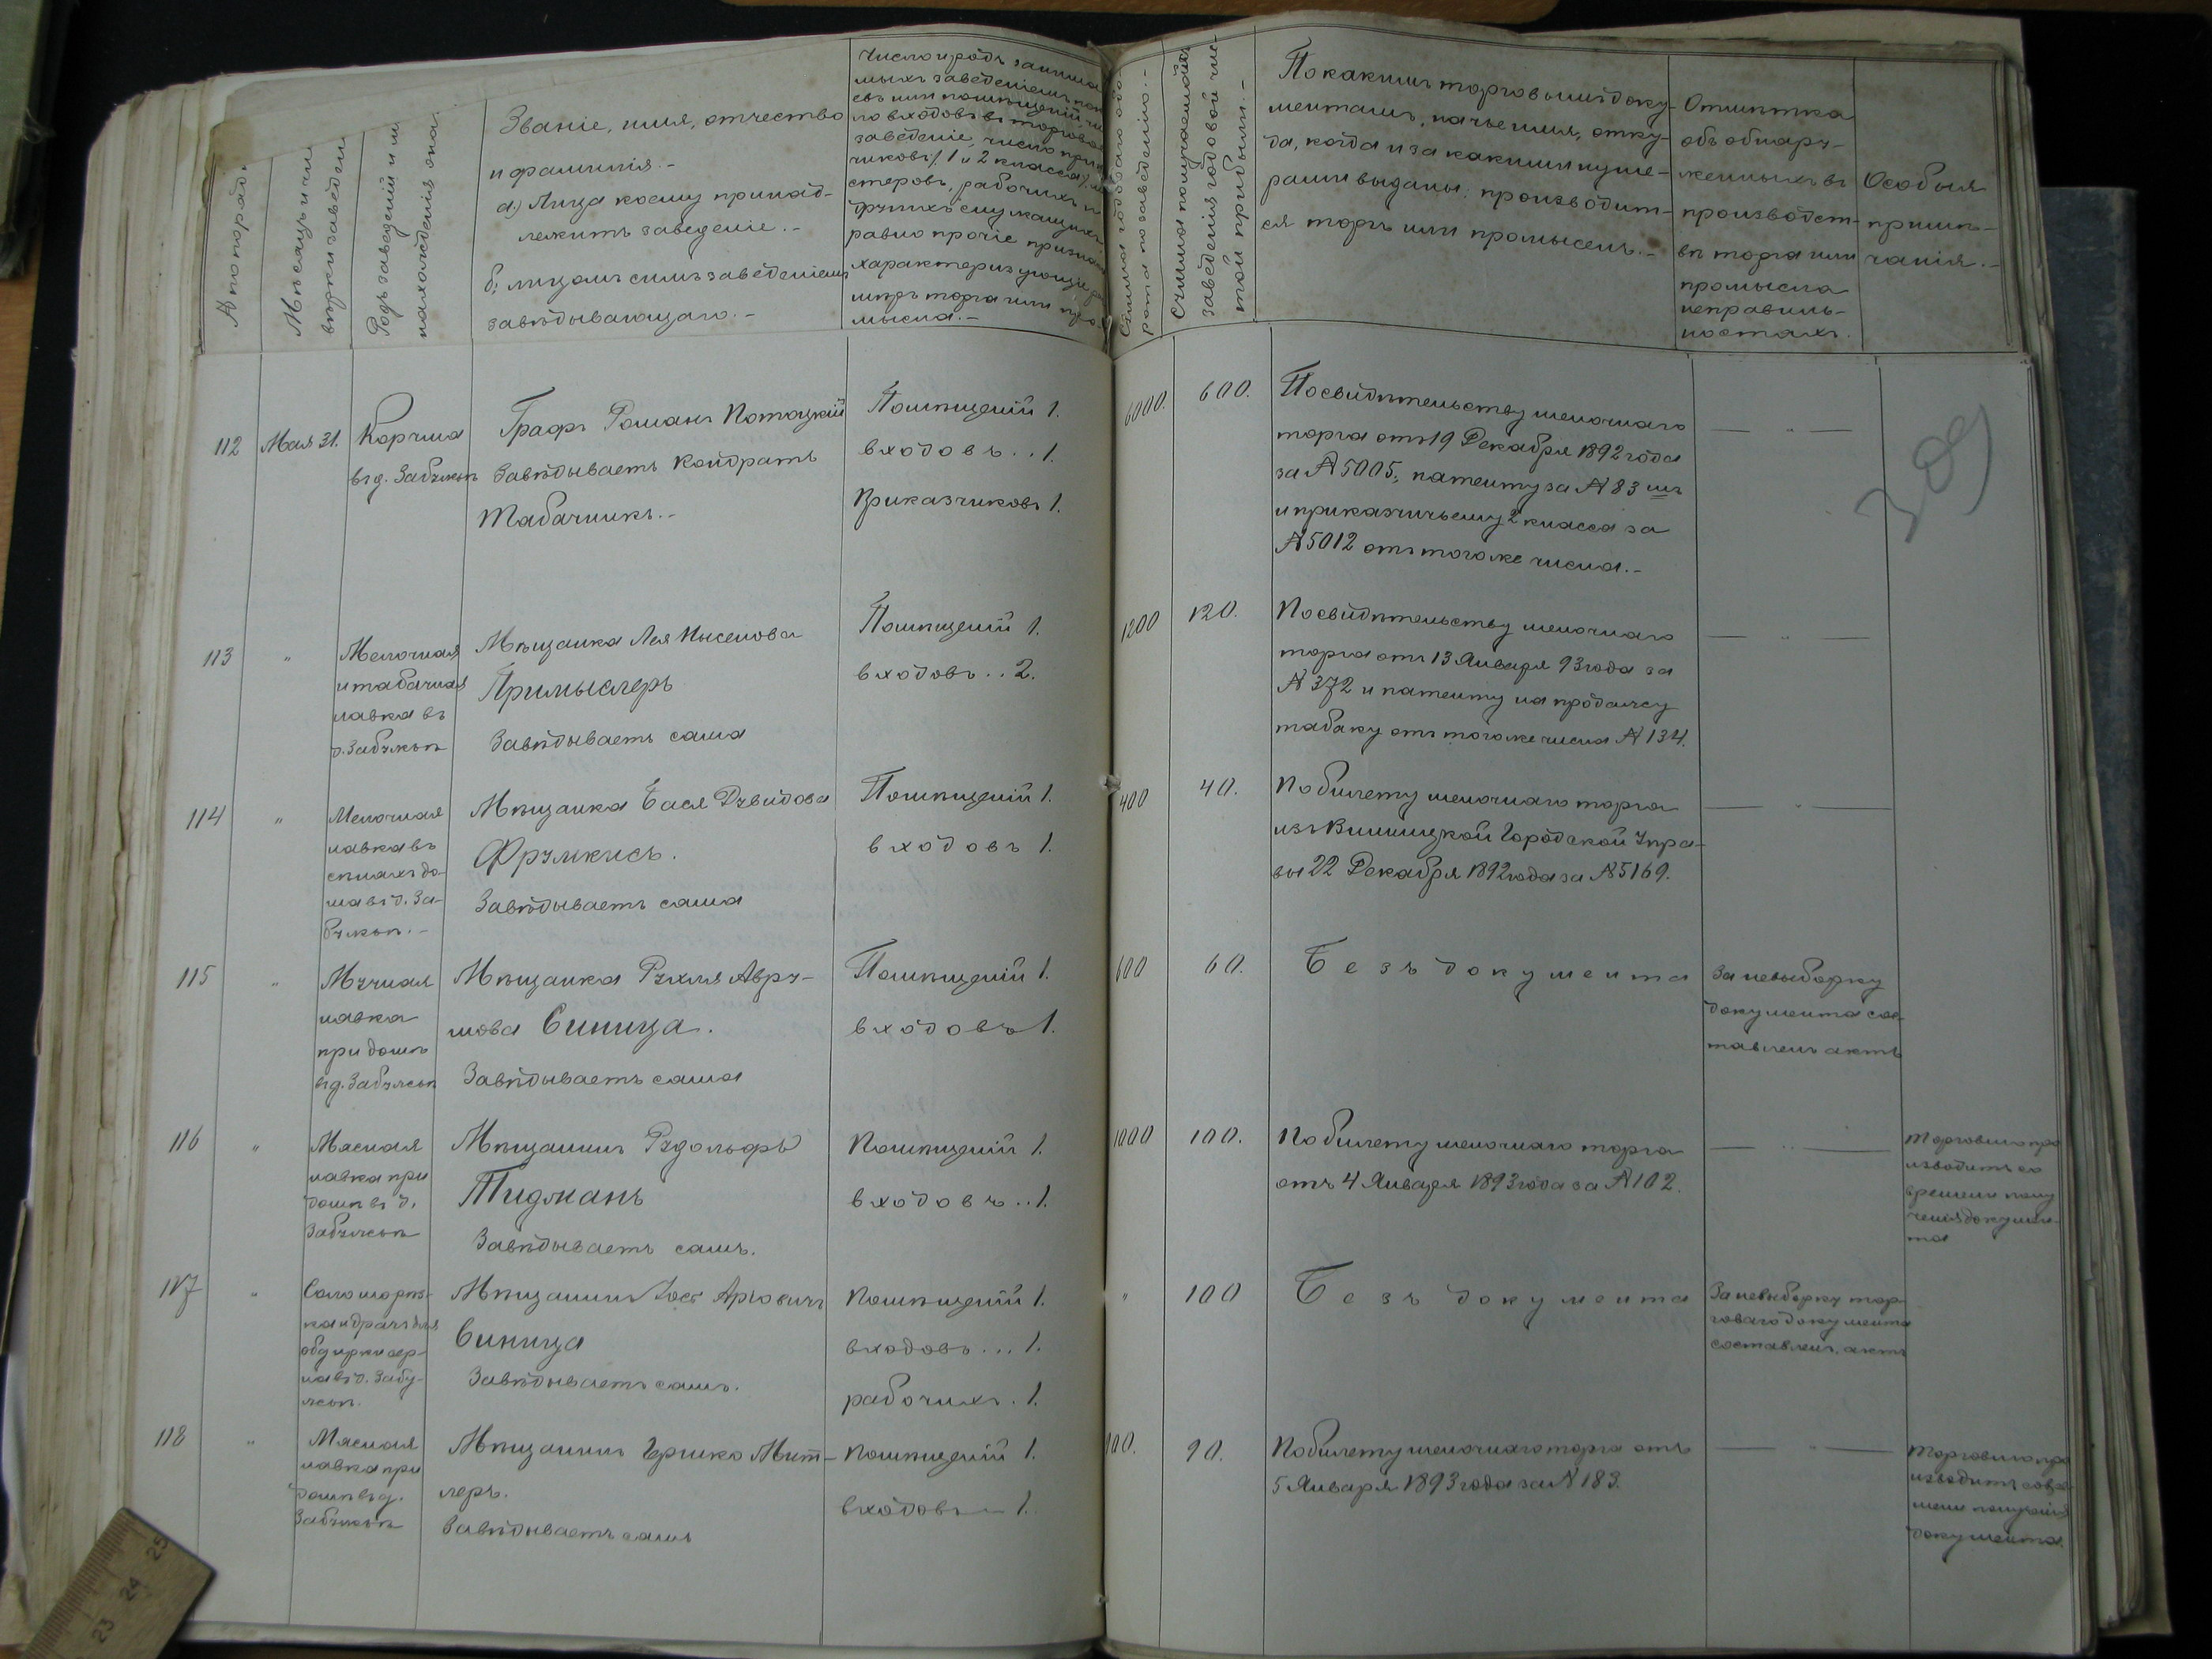 № по поряд
Мѣсяцъ и чи
вѣрки заведен
Родъ заведеній и м
нахожденія она
Званіе, имя, отчество
и фамилія.-
а) Лица коему принад-
лежитъ заведеніе.-
б) лицомъ симъ заведеніемъ
завѣдывающаго.-
Число и родъ занима
мыхъ заведеніемъ
евъ или помѣщеній
ло входовъ въ торговое
заведеніе, число при
чиковъ (1 и 2 класса),
стеровъ, рабочихъ и
другихъ служащихъ
равно прочіе признаки
характеризующіе ра
мѣръ торга или про-
мысла.-
Сумма годоваго обо-
рота по заведенію.-
Сумма получаемой
заведенія годовой чис-
той прибыли.-
По какимъ торговымъ доку-
ментамъ, на чье имя, отку-
да, когда и за какими нуме-
рами выданы, производит-
ся торгъ или промыселъ.-
Отмѣтка
объ обнару-
женныхъ въ
производст-
вѣ торга или
промысла
неправиль-
ностяхъ.
Особыя
примѣ-
чанія.-
309
112
Мая 31.
Корчма
въ д. Забужьѣ
Графъ Романъ Потоцкій
Завѣдываетъ Кондратъ
Табачникъ.-
Помѣщеній 1.
входовъ .. 1.
Приказчиковъ 1.
6000.
600.
По свидѣтельству мелочнаго
торга отъ 19 Декабря 1892 года
за № 5005, патенту за № 83 мъ
и приказчичьему 2 класса за
№ 5012 отъ того же числа.-
— " —
113
"
Мелочная
и табачная
лавка въ
д. Забужьѣ
Мѣщанка Лея
Примыслеръ
Завѣдываетъ сама
Помѣщеній 1.
входовъ .. 2.
1200
120.
По свидѣтельству мелочнаго
торга отъ 13 Января 93 года за
№ 372 и патенту на продажу
табаку отъ того же числа № 134.
— " —
114
"
Мелочная
лавка въ
сѣняхъ до-
ма въ д. За-
бужьѣ.-
Мѣщанка Бася Дувидова
Фрумкисъ.
Завѣдываетъ сама
Помѣщеній 1.
входовъ 1.
400
40.
По билету мелочнаго торга
изъ Винницкой Городской Упра-
вы 22 Декабря 1892 года за № 5169.
— " —
115
"
Мучная
лавка
при домѣ
въ д. Забужьѣ
Мѣщанка Рухля Авру-
мова Синица.
Завѣдываетъ сама
Помѣщеній 1.
входовъ 1.
600
60.
Безъ документа
За невыборку
документа сос-
тавленъ актъ
116
"
Мясная
лавка при
домѣ въ д.
Забужьѣ
Мѣщанинъ Рудольфъ
Тиджанъ
Завѣдываетъ самъ.
Помѣщеній 1.
входовъ .. 1.
1000
100.
По билету мелочнаго торга
отъ 4 Января 1893 года за № 102.
— " —
Торговлю про
изводитъ со
времени полу
ченія докумен-
та
117
"
Соломорѣз-
ка и драчъ для
обдирки зер-
на въ д. Забу-
жьѣ.
Мѣщанинъ
Синица
Завѣдываетъ самъ.
Помѣщеній 1.
входовъ ... 1.
рабочихъ . 1.
"
100
Безъ документа
За невыборку тор-
говаго документа
составленъ актъ
118
"
Мясная
лавка при
домѣ въ д.
Забужьѣ
Мѣщанинъ Гершко Мит-
леръ.
Завѣдываетъ самъ
Помѣщеній 1.
входовъ — 1.
90.
По билету мелочнаго торга отъ
5 Января 1893 года за № 183.
— " —
Торговлю про
изводитъ со вре-
мени полученія
документа.
23 24 25